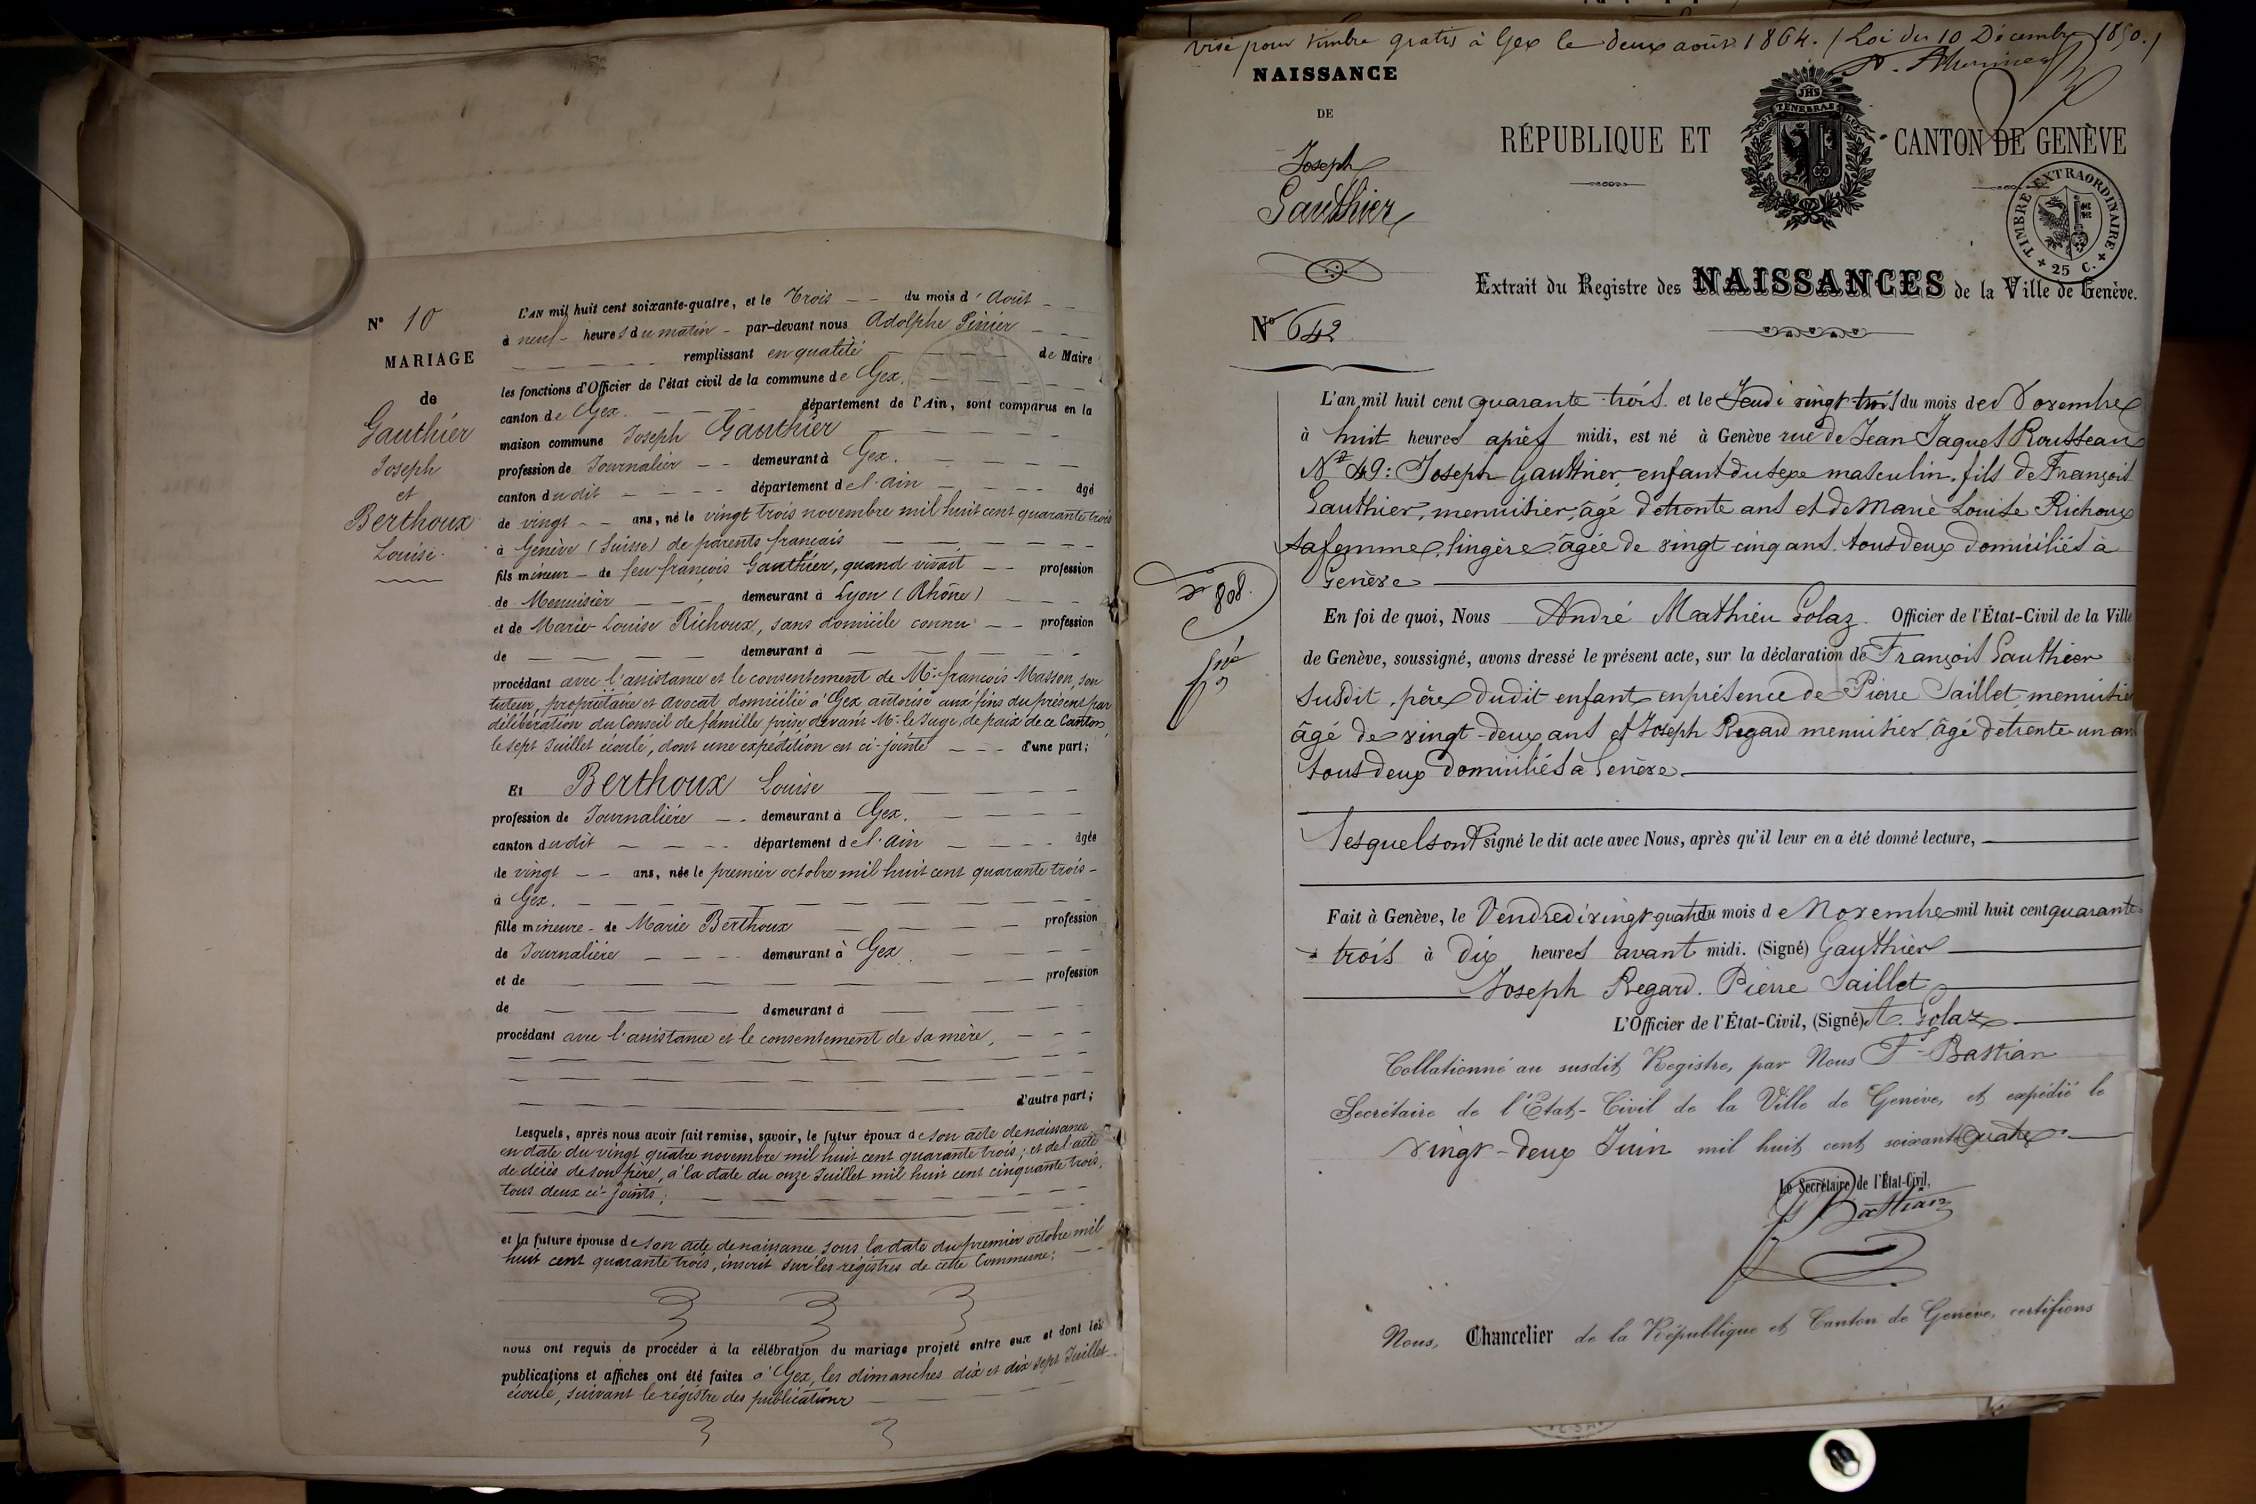 N° 10
MARIAGE
de
Gauthier
Joseph
et
Berthoux
Louise.
L'AN mil huit cent soixante-quatre, et le Trois du mois d'Août
à neuf heures du matin par-devant nous Adolphe Pinier
remplissant en qualité de Maire
les fonctions d'Officier de l'état civil de la commune de Gex.
canton de Gex. département de l'Ain, sont comparus en la
maison commune Joseph Gauthier
profession de Journalier demeurant à Gex.
canton dudit département de l'ain âgé
de vingt ans, né le vingt trois novembre mil huit cent quarante trois
à Genève (Suisse) de parents français
fils mineur de feu françois Gauthier, quand vivait profession
de Menuisier demeurant à Lyon (Rhône)
et de Marie-Louise Richoux, sans domicile connu profession
de demeurant à
procédant avec l'assistance et le consentement de Mr. françois Masson, son
tuteur, propriétaire et avocat domicilié à Gex autorisé aux fins du présent par
délibération du Conseil de famille prise devant Mr. le Juge de paix de ce Canton
le sept Juillet écoulé, dont une expédition est ci-jointe d'une part;
Et Berthoux Louise
profession de Journalière demeurant à Gex.
canton dudit département de l'ain âgée
de vingt ans, née le premier octobre mil huit cent quarante trois
à Gex.
fille mineure de Marie Berthoux profession
de Journalière demeurant à Gex.
et de profession
de demeurant à
procédant avec l'assistance et le consentement de sa mère,
d'autre part;
Lesquels, après nous avoir fait remise, savoir, le futur époux de son acte de naissance
en date du vingt quatre novembre mil huit cent quarante trois; et de l'acte
de décès de son père, à la date du onze Juillet mil huit cent cinquante trois,
tous deux ci-joints;
et la future épouse de son acte de naissance, sous la date du premier octobre mil
huit cent quarante trois, inscrit sur les régistres de cette Commune;
nous ont requis de procéder à la célébration du mariage projeté entre eux et dont les
publications et affiches ont été faites à Gex, les dimanches dix et dix sept Juillet
écoulé, suivant le régistre des publications
visé pour timbre gratis à Gex le deux août 1864. (Loi du 10 Décembre 1850.)
NAISSANCE
DE
Joseph
Gauthier
N° 642
RÉPUBLIQUE ET CANTON DE GENÈVE
JHS
POST TENEBRAS LUX
TIMBRE EXTRAORDINAIRE
25 C.
Extrait du Registre des NAISSANCES de la Ville de Genève.
L'an mil huit cent quarante-trois et le Jeudi vingt-trois du mois de Novembre
à huit heures après midi, est né à Genève rue de Jean Jaques Rousseau
N° 49: Joseph Gauthier, enfant du sexe masculin, fils de François
Gauthier, menuisier, âgé de trente ans et de Marie Louise Richoux
sa femme, lingère, âgée de vingt cinq ans, tous deux domiciliés à
Genève
808.
En foi de quoi, Nous André Mathieu Golaz Officier de l'État-Civil de la Ville
de Genève, soussigné, avons dressé le présent acte, sur la déclaration de François Gauthier
susdit, père dudit enfant, en présence de Pierre Saillet, menuisier
âgé de vingt-deux ans et Joseph Regard menuisier, âgé de trente-un ans
tous deux domiciliés à Genève.
Lesquels ont signé le dit acte avec Nous, après qu'il leur en a été donné lecture,
Fait à Genève, le Vendredi vingt-quatre du mois de Novembre mil huit cent quarante
trois à dix heures avant midi. (Signé) Gauthier
Joseph Regard. Pierre Saillet
L'Officier de l'État-Civil, (Signé) A. Golaz
Collationné au susdit Registre, par Nous F. Bastian
Secrétaire de l'État-Civil de la Ville de Genève, et expédié le
vingt-deux Juin mil huit cent soixante quatre.
Le Secrétaire de l'État-Civil,
F. Bastian
Nous, Chancelier de la République et Canton de Genève, certifions